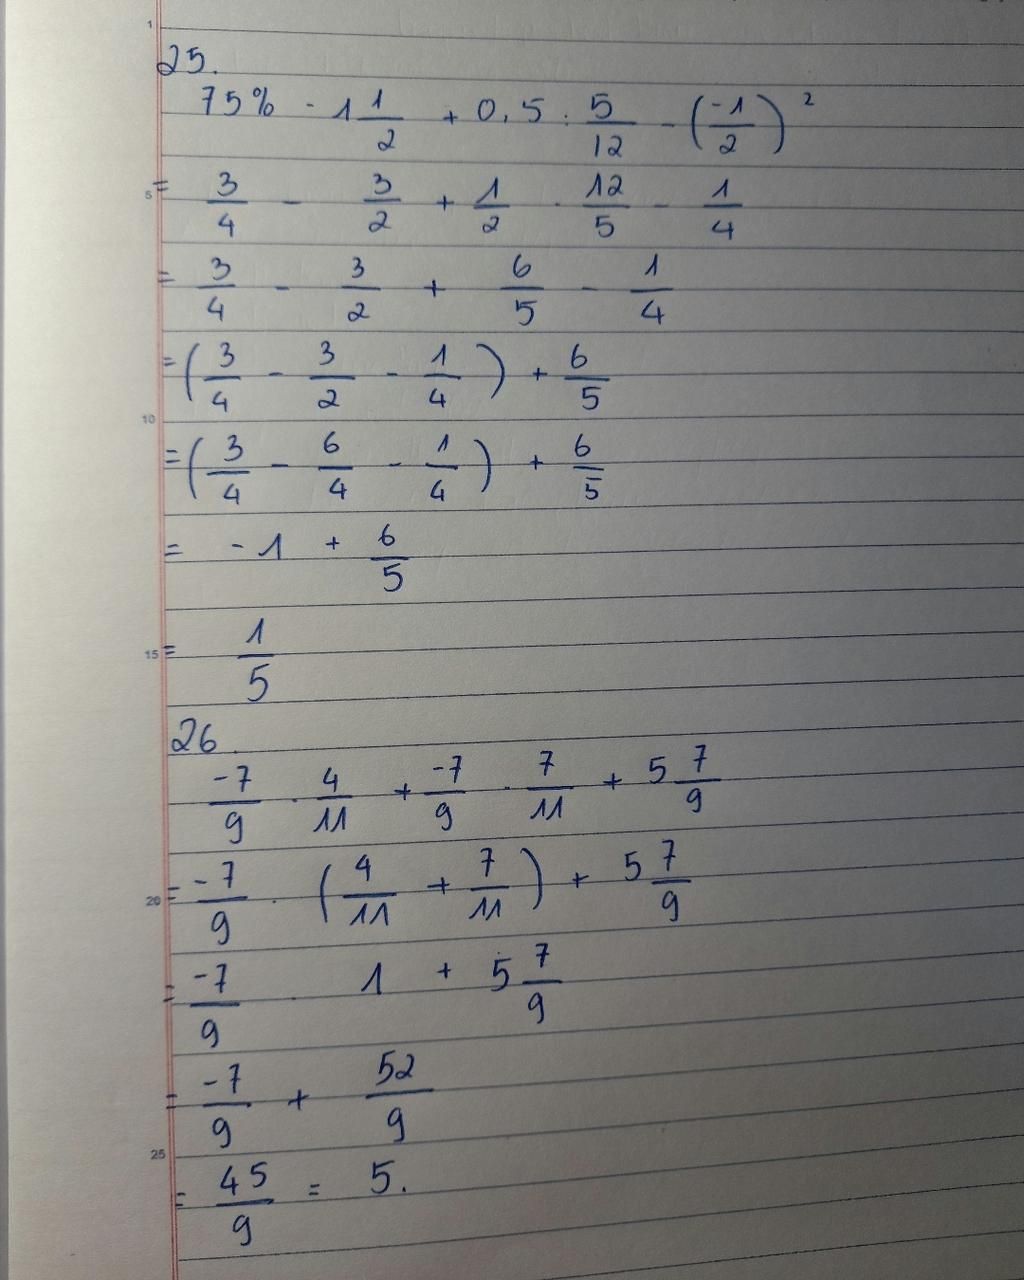 1
25.
75% - 1 1/2 + 0,5 : 5/12 - (-1/2)²
5 = 3/4 - 3/2 + 1/2 . 12/5 - 1/4
= 3/4 - 3/2 + 6/5 - 1/4
= (3/4 - 3/2 - 1/4) + 6/5
10
= (3/4 - 6/4 - 1/4) + 6/5
= -1 + 6/5
15 = 1/5
26.
-7/9 . 4/11 + -7/9 . 7/11 + 5 7/9
20 = -7/9 . (4/11 + 7/11) + 5 7/9
= -7/9 . 1 + 5 7/9
= -7/9 + 52/9
25
= 45/9 = 5.